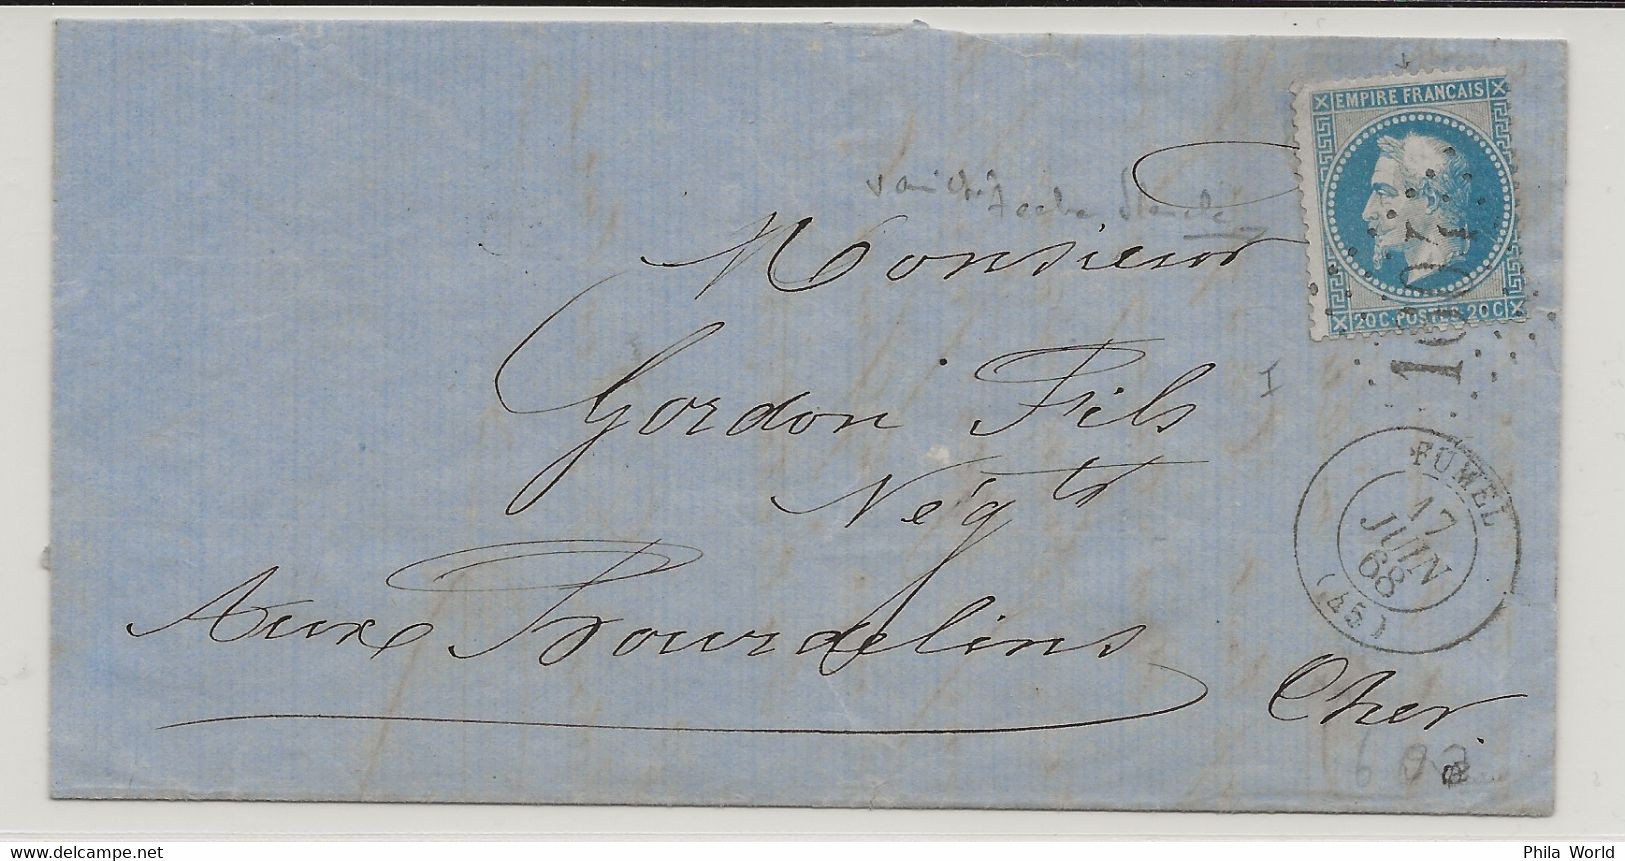 EMPIRE FRANCAIS
20C·POSTES·20C
1607
Monsieur
Gordon Fils
Négts
Aux Bourdelins
Cher.
I
FUMEL
17
JUIN
68
(45)
Phila World